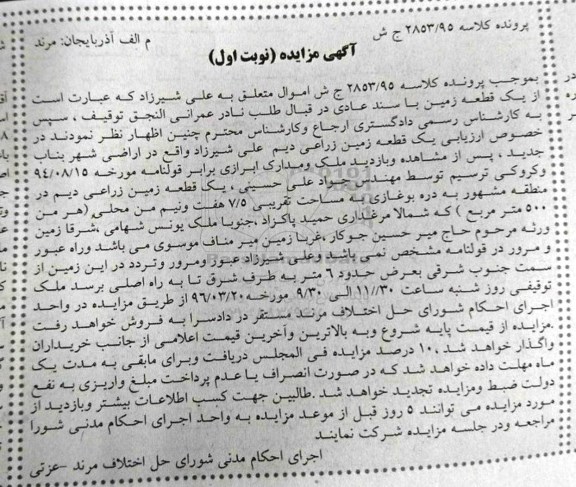 پرونده کلاسه ۲۸۵۳/۹۵ ج ش
م الف آذربایجان: مرند
آگهی مزایده (نوبت اول)
بموجب پرونده کلاسه ۲۸۵۳/۹۵ ج ش اموال متعلق به علی شیرزاد که عبارت است
از یک قطعه زمین با سند عادی در قبال طلب نادر عمرانی النجق توقیف ، سپس
به کارشناس رسمی دادگستری ارجاع وکارشناس محترم چنین اظهار نظر نمودند در
خصوص ارزیابی یک قطعه زمین زراعی دیم علی شیرزاد واقع در اراضی شهر بناب
جدید ، پس از مشاهده وبازدید ملک ومدارک ابرازی برابر قولنامه مورخه ۹۴/۰۸/۱۵
وکروکی ترسیم توسط مهندس مراد علی حسینی ، یک قطعه زمین زراعی دیم در
منطقه مشهور به دره بوغازی به مساحت تقریبی ۷/۵ هفت ونیم من محلی (هر من
۵۰۰ متر مربع ) که شمالا مرغداری حمید پاکزاد ،جنوبا ملک یونس شهامی ،شرقا زمین
ورثه مرحوم حاج میر حسین جوکار ،غربا زمین میر مناف موسوی می باشد وراه عبور
و مرور در قولنامه مشخص نمی باشد وعلی شیرزاد عبور ومرور وتردد در این زمین از
سمت جنوب شرقی بعرض حدود ۶ متر به طرف شرق تا به راه اصلی برسد ملک
توقیفی روز شنبه ساعت ۱۱//۳۰ الی ۹/۳۰ مورخه ۹۶/۰۳/۲۰ از طریق مزایده در واحد
اجرای احکام شورای حل اختلاف مرند مستقر در دادسرا به فروش خواهد رفت
.مزایده از قیمت پایه شروع وبه بالاترین وآخرین قیمت اعلامی از جانب خریداران
واگذار خواهد شد ،۱۰ درصد مزایده فی المجلس دریافت وبرای مابقی به مدت یک
ماه مهلت داده خواهد شد که در صورت انصراف یا عدم پرداخت مبلغ واریزی به نفع
دولت ضبط ومزایده تجدید خواهد شد .طالبین جهت کسب اطلاعات بیشتر وبازدید از
مورد مزایده می توانند ۵ روز قبل از موعد مزایده به واحد اجرای احکام مدنی شورا
مراجعه ودر جلسه مزایده شرکت نمایند
اجرای احکام مدنی شورای حل اختلاف مرند –عزتی